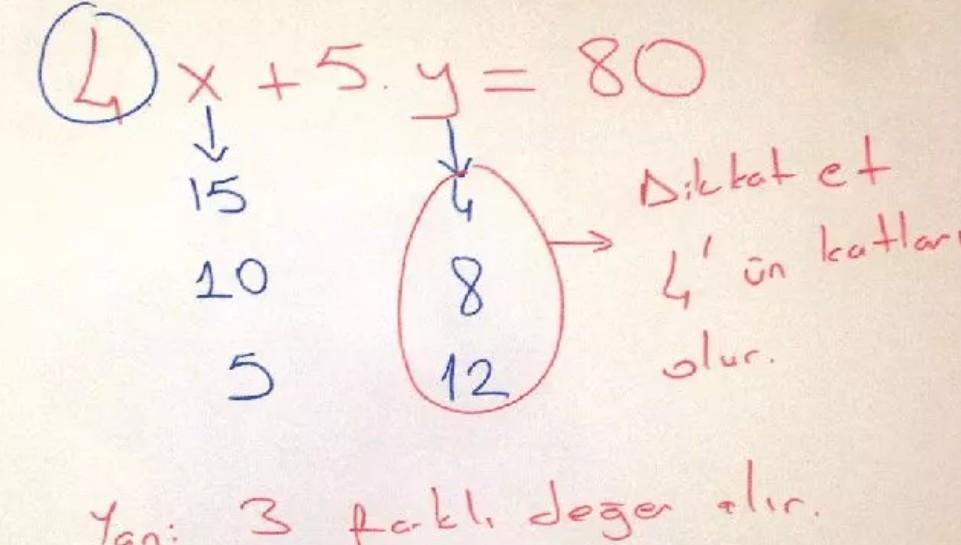 4x + 5.y = 80
15 4
10 8
5 12
Dikkat et
4'ün katları
olur.
Yani 3 farklı değer alır.